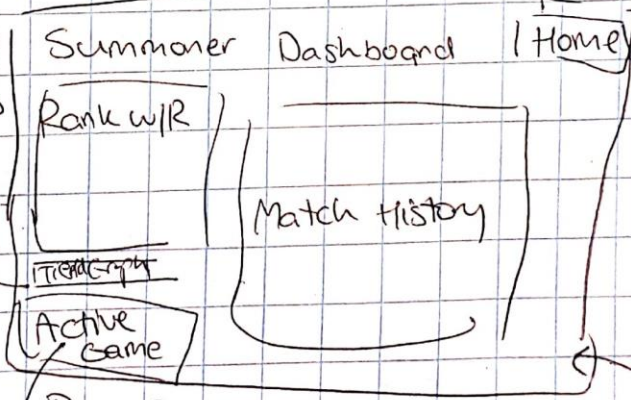 Summoner Dashboard Home
Rank W/R
Match History
Active
Game